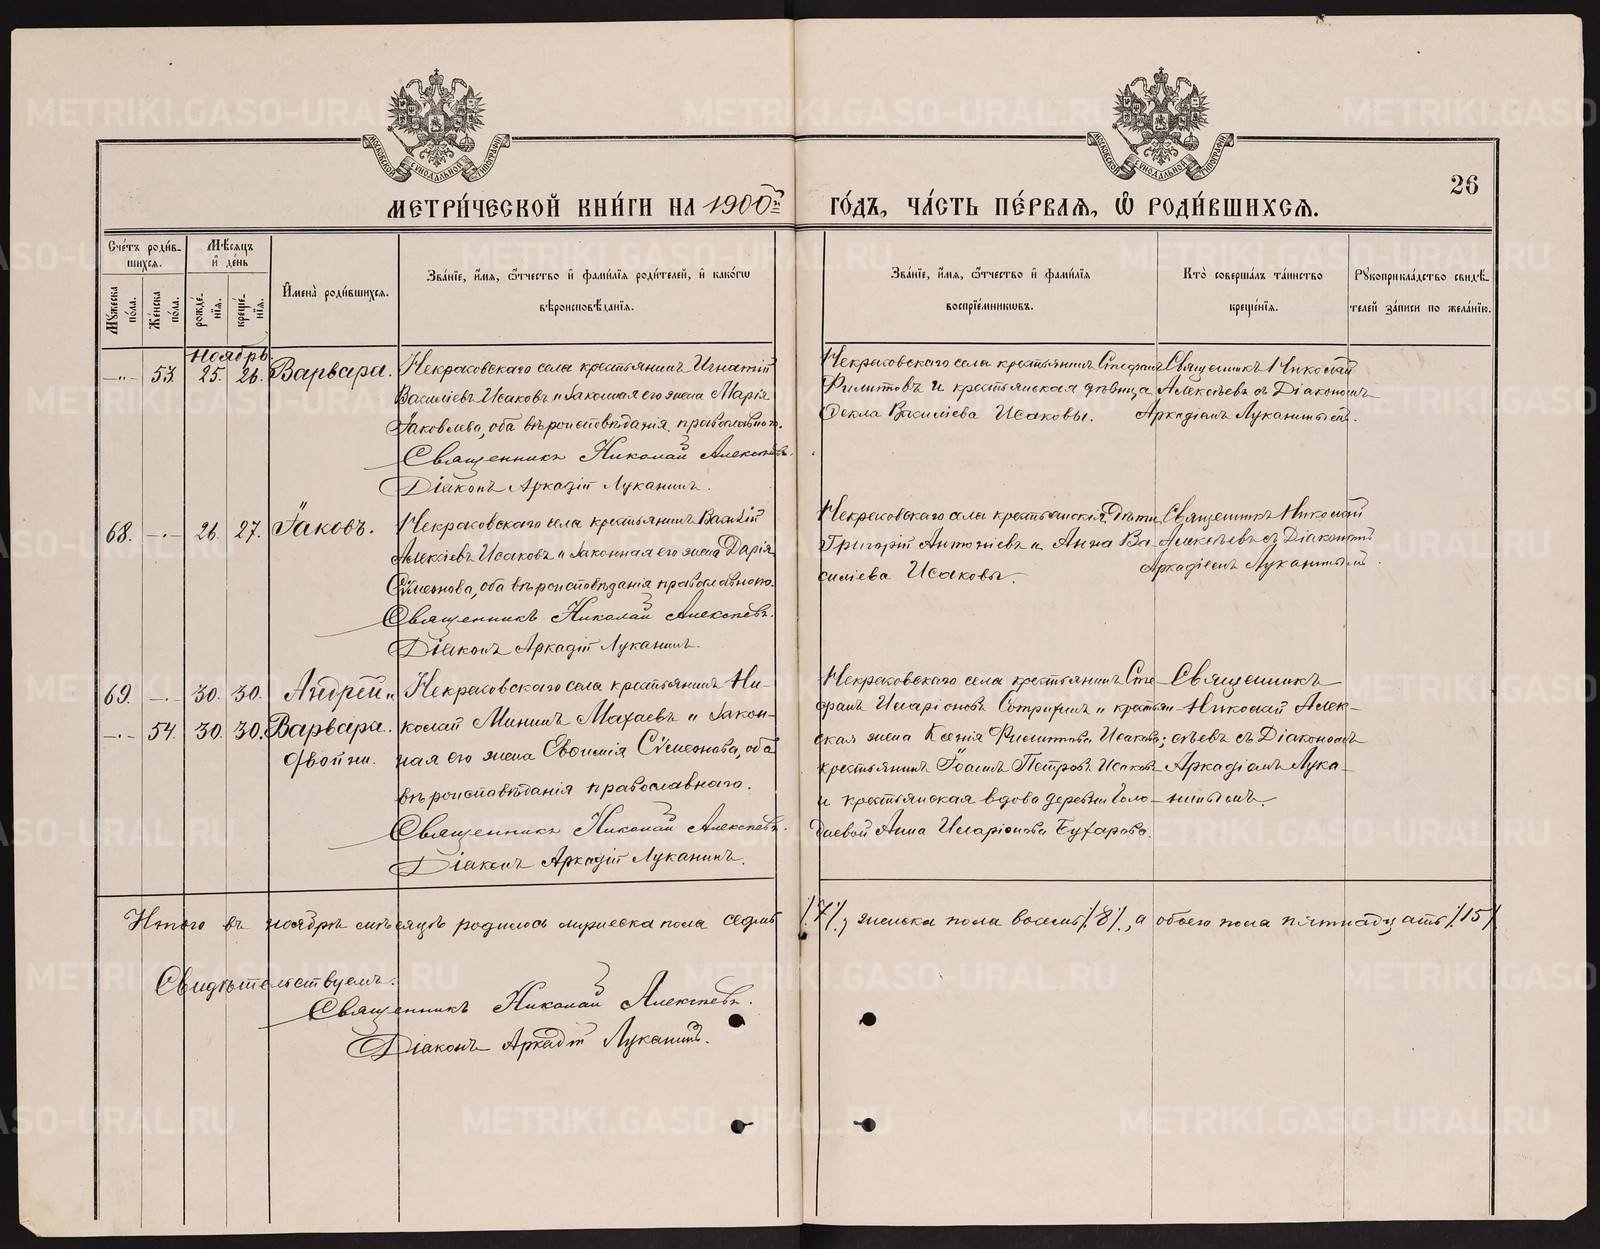 МОСКОВСКОЙ СѴНОДАЛЬНОЙ ТИПОГРАФІИ
МОСКОВСКОЙ СѴНОДАЛЬНОЙ ТИПОГРАФІИ
26
МЕТРИ́ЧЕСКОЙ КНИ́ГИ НА 1900й ГО́ДЪ, ЧА́СТЬ ПЕ́РВАЯ, Ѽ РОДИ́ВШИХСЯ.
Сче́тъ роди́в-
шихся.
Мѣ́сяцъ
и҆ де́нь
Мꙋ́жеска по́ла.
Же́нска по́ла.
рожде́-
нїя.
креще́-
нїя.
И҆мена̀ роди́вшихся.
Зва́нїе, и҆́мя, ѻ҆́тчество и҆ фами́лїя роди́телей, и҆ како́гѡ
вѣроисповѣ́данїя.
Зва́нїе, и҆́мя, ѻ҆́тчество и҆ фами́лїя
воспрїе́мникѡвъ.
Кто̀ соверша́лъ та́инство
креще́нїя.
Рꙋкоприкла́дство свидѣ́-
телей за́писи по жела́нїю.
Ноябрь.
-„- 53. 25. 26. Варвара.
Некрасовскаго села крестьянинъ Игнатій
Василіевъ Исаковъ и законная его жена Марія
Іаковлева, оба вѣроисповѣданія православнаго.
Священникъ Николай Алексѣевъ.
Діаконъ Аркадій Луканинъ.
Некрасовскаго села крестьянинъ Стефанъ
Филиповъ и крестьянская дѣвица
Фекла Василіева Исаковы.
Священникъ Николай
Алексѣевъ съ Діакономъ
Аркадіемъ Луканинымъ.
68. -„- 26. 27. Іаковъ.
Некрасовскаго села крестьянинъ Василій
Алексіевъ Исаковъ и законная его жена Дарія
Сѵмеонова, оба вѣроисповѣданія православнаго.
Священникъ Николай Алексѣевъ.
Діаконъ Аркадій Луканинъ.
Некрасовскаго села крестьянскія дѣти
Григорій Антоніевъ и Анна Ва-
силіева Исаковы.
Священникъ Николай
Алексѣевъ съ Діакономъ
Аркадіемъ Луканинымъ.
69. -„- 30. 30. Андрей и
-„- 54. 30. 30. Варвара.
двойни.
Некрасовскаго села крестьянинъ Ни-
колай Мининъ Махаевъ и закон-
ная его жена Евфимія Сѵмеонова, оба
вѣроисповѣданія православнаго.
Священникъ Николай Алексѣевъ.
Діаконъ Аркадій Луканинъ.
Некрасовскаго села крестьянинъ Сте-
фанъ Иларіоновъ и крестьян-
ская жена Ксенія Филиппова Исакова;
крестьянинъ Іоаннъ Петровъ Исаковъ
и крестьянская вдова деревни Голо-
Анна Иларіонова Бухарова.
Священникъ
Николай Алек-
сѣевъ съ Діакономъ
Аркадіемъ Лука-
нинымъ.
Итого въ ноябрѣ мѣсяцѣ родилось мужеска пола седмь /7/, женска пола восемь /8/, а обоего пола пятнадцать /15/
Свидѣтельствуемъ:
Священникъ Николай Алексѣевъ.
Діаконъ Аркадій Луканинъ.
METRIKI.GASO-URAL.RU